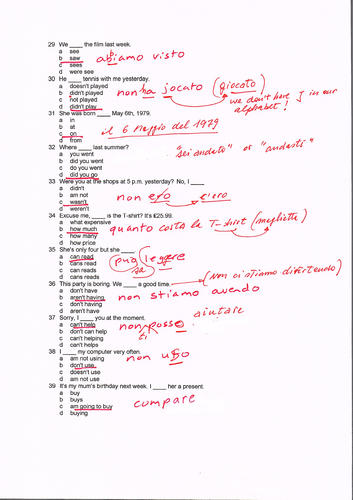 29 We ____ the film last week.
a see
b saw abiamo visto
c sees
d were see
30 He ____ tennis with me yesterday.
a doesn't played
b didn't played non ha jocato (giocato)
c not played
d didn't play we don't have J in our alphabet!
31 She was born ____ May 6th, 1979.
a in
b at
c on il 6 Maggio del 1979
d from
32 Where ____ last summer?
a you went
b did you went "sei andato" or "andasti"
c do you went
d did you go
33 Were you at the shops at 5 p.m. yesterday? No, I ____
a didn't
b am not
c wasn't non ero c'ero
d weren't
34 Excuse me, ____ is the T-shirt? It's £25.99.
a what expensive
b how much quanto costa la T-shirt (maglietta)
c how many
d how price
35 She's only four but she ____
a can read può leggere
b cans read sa
c can reads
d cans reads
36 This party is boring. We ____ a good time. (Non ci stiamo divertendo)
a don't have
b aren't having non stiamo avendo
c don't having
d aren't have
37 Sorry, I ____ you at the moment. aiutare
a can't help
b don't can help non posso
c can't helping ti
d can't helps
38 I ____ my computer very often.
a am not using
b don't use non uso
c doesn't use
d am not use
39 It's my mum's birthday next week. I ____ her a present.
a buy
b buys
c am going to buy compare
d buying